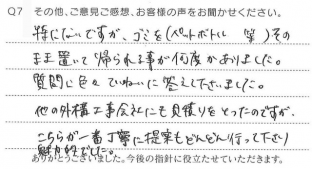 Q7 その他、ご意見ご感想、お客様の声をお聞かせください。
特にないですが、ゴミを(ペットボトル 等)その
まま置いて帰られる事が何度かありました。
質問に色々ていねいに答えて下さいました。
他の外構工事会社にも見積りをとったのですが、
こちらが一番丁寧に提案もどんどん行って下さり
魅力的でした。
ありがとうございました。今後の指針に役立たせていただきます。